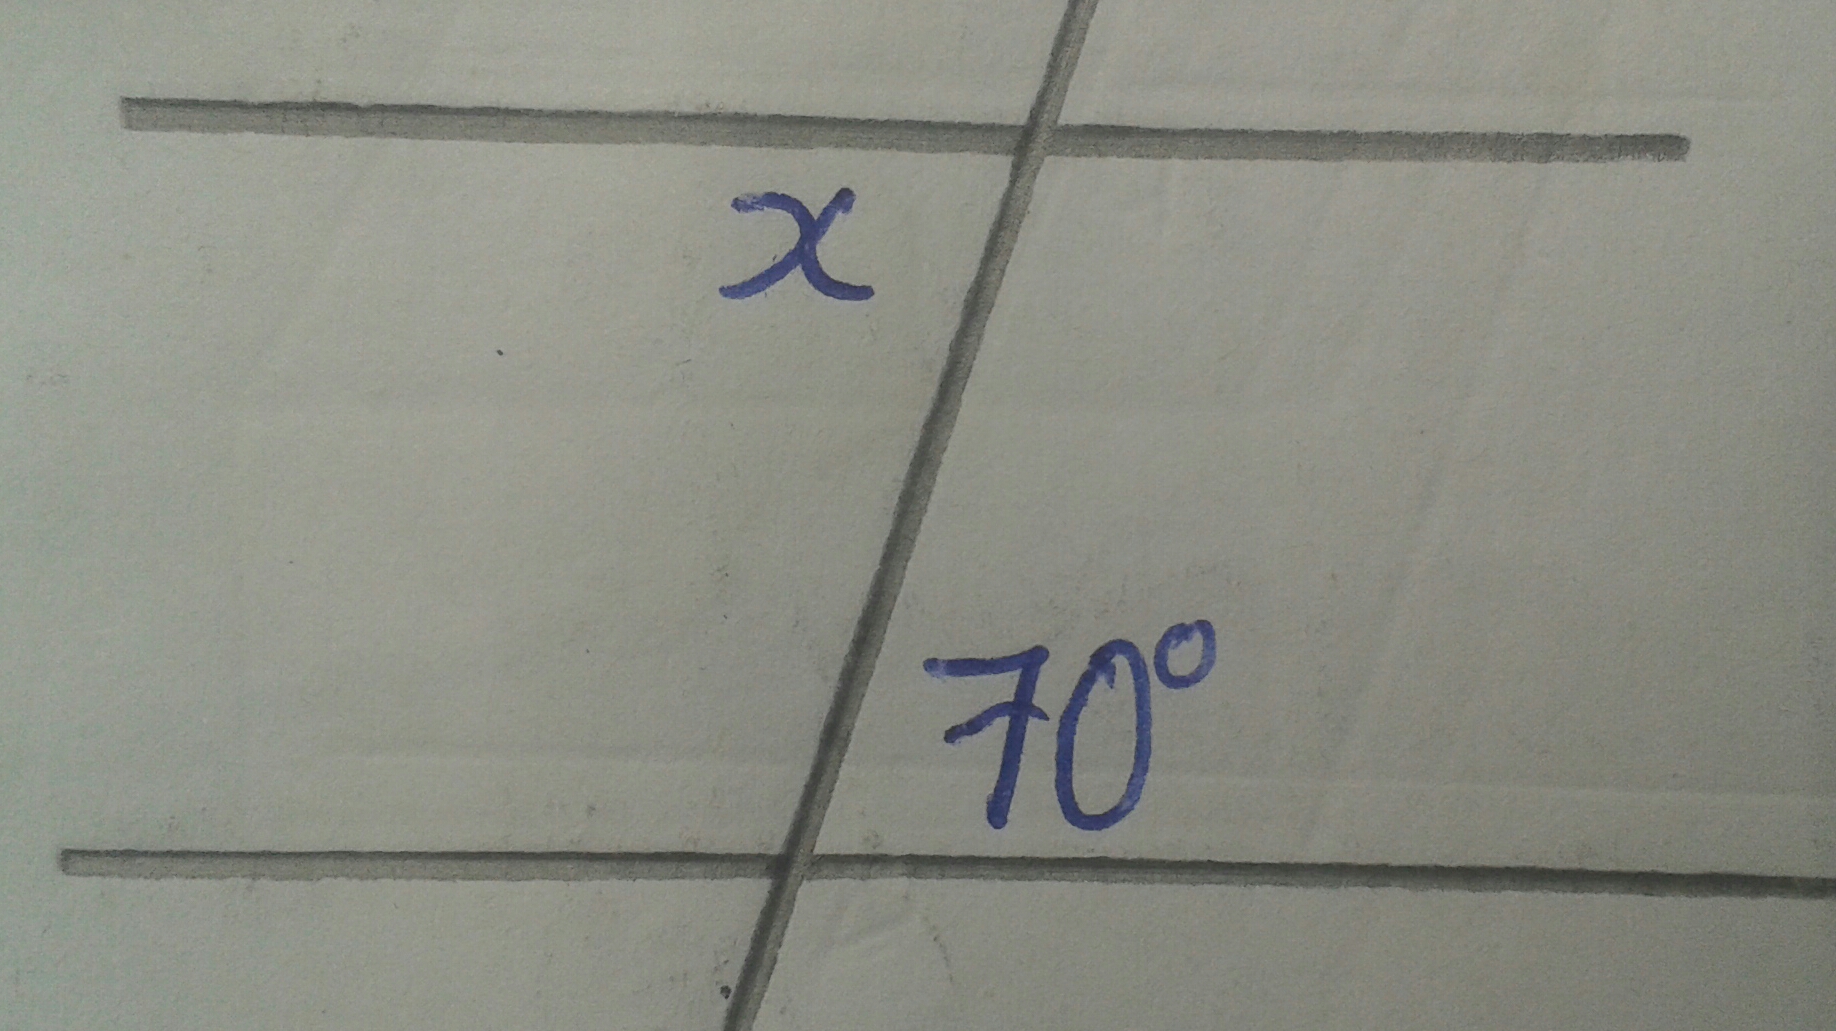 x
70°